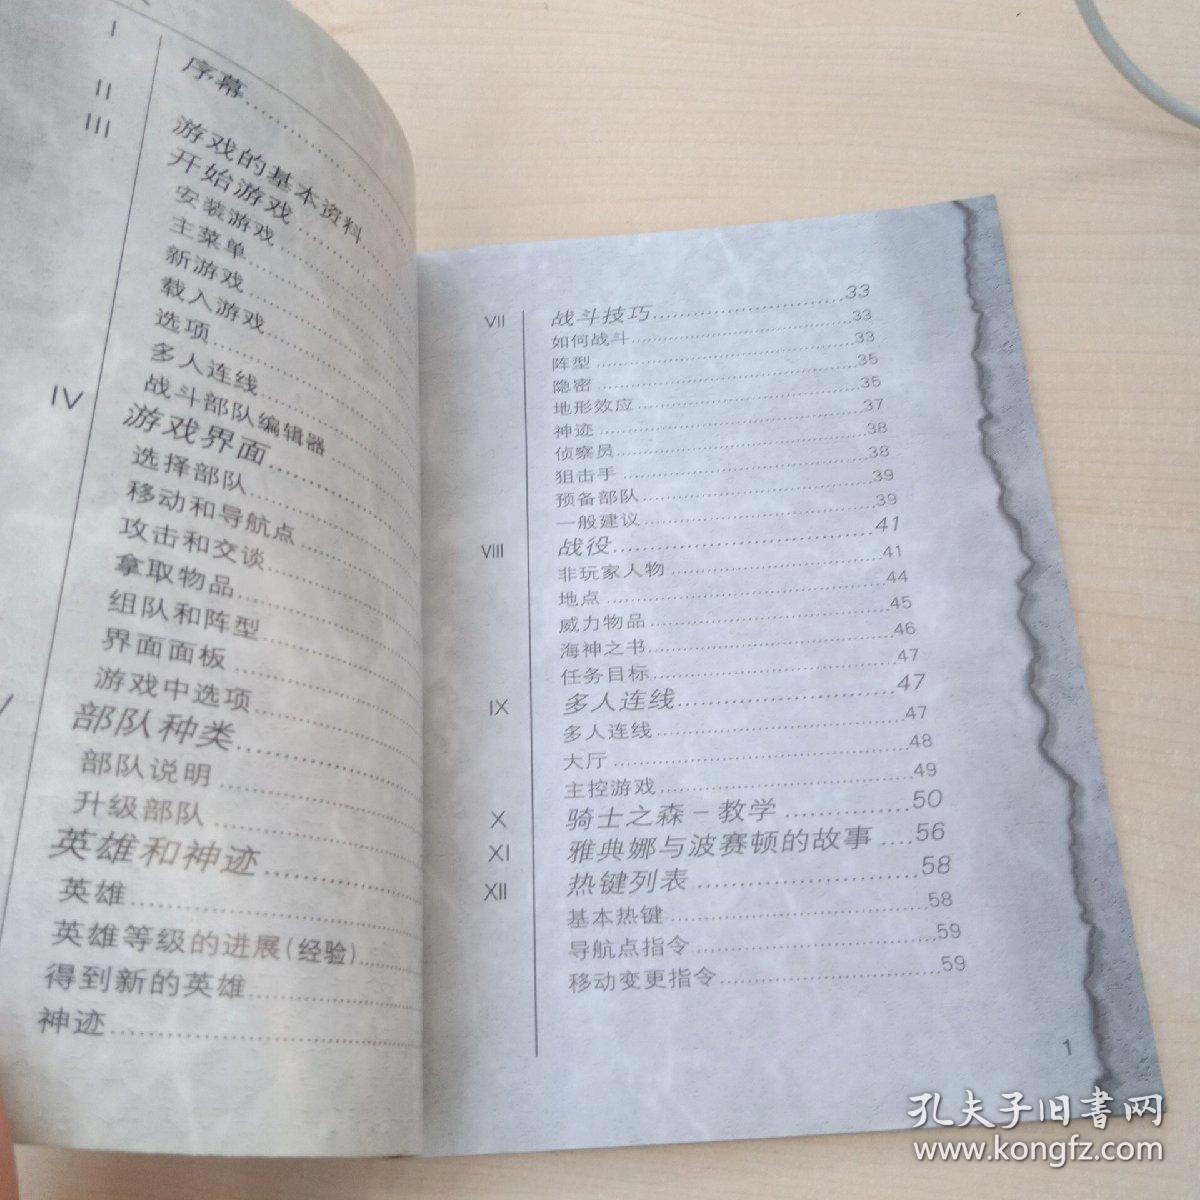 I 序幕
II 游戏的基本资料
III 开始游戏
安装游戏
主菜单
新游戏
载入游戏
选项
多人连线
战斗部队编辑器
IV 游戏界面
选择部队
移动和导航点
攻击和交谈
拿取物品
组队和阵型
界面面板
游戏中选项
部队种类
部队说明
升级部队
英雄和神迹
英雄
英雄等级的进展(经验)
得到新的英雄
神迹
VII 战斗技巧 33
如何战斗 33
阵型 33
隐密 35
地形效应 35
神迹 37
侦察员 38
狙击手 38
预备部队 39
一般建议 39
VIII 战役 41
非玩家人物 41
地点 44
威力物品 45
海神之书 46
任务目标 47
IX 多人连线 47
多人连线 47
大厅 48
主控游戏 49
X 骑士之森-教学 50
XI 雅典娜与波赛顿的故事 56
XII 热键列表 58
基本热键 58
导航点指令 59
移动变更指令 59
1
孔夫子旧书网
www.kongfz.com